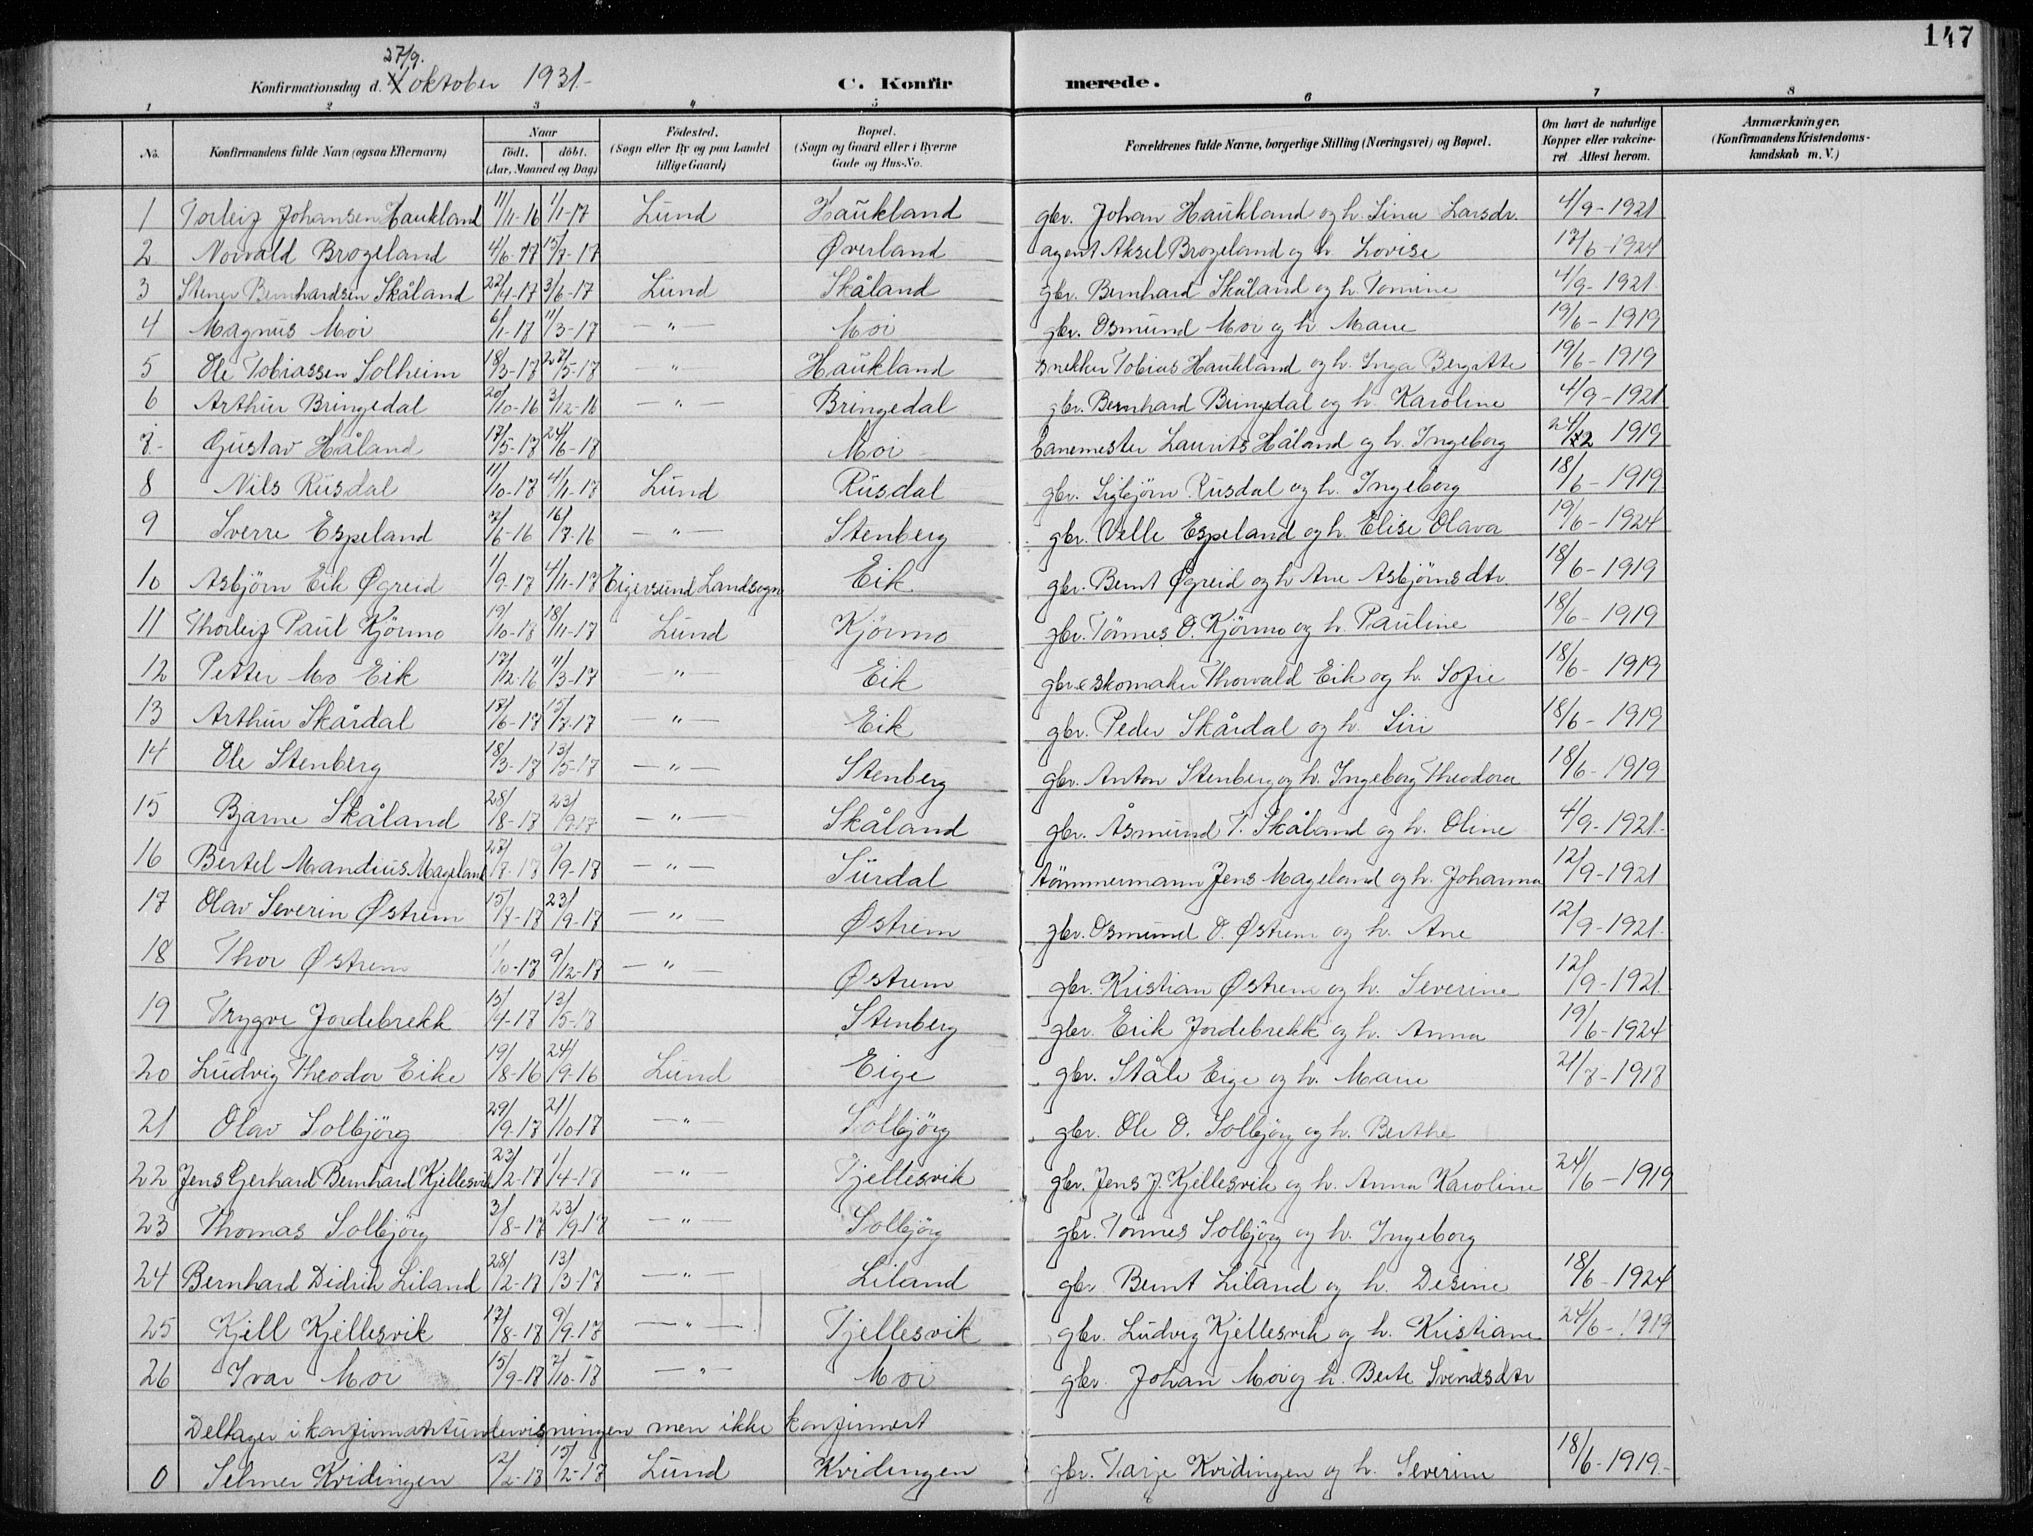 147
27/9.
Konfirmationsdag d. 4 oktober 1931.-
C. Konfirmerede.
1 2 3 4 5 6 7 8
No. Konfirmandens fulde Navn (ogsaa Efternavn) Naar født. døbt. (Aar, Maaned og Dag) Fødested. (Sogn eller By og paa Landet tillige Gaard) Bopæl. (Sogn og Gaard eller i Byerne Gade og Hus-No. Forældrenes fulde Navne, borgerlige Stilling (Næringsvei) og Bopæl. Om havt de naturlige Kopper eller vakcineret. Attest herom. Anmærkninger. (Konfirmandens Kristendomskundskab m. V.)
1 Torleif Johansen Haukland 11/11-16 1/1-17 Lund Haukland gbr. Johan Haukland og h. Sina Larsdr. 4/9-1921
2 Norvald Brogeland 4/6-17 15/7-17 Øverland agent Aksel Brogeland og h. Lovise 17/6-1924
3 Stener Bernhardsen Skåland 22/4-17 3/6-17 Lund Skåland gbr. Bernhard Skåland og h. Tomine 4/9-1921.
4 Magnus Moi 6/1-17 11/3-17 -"- Moi gbr. Osmund Moi og h. Marie 19/6-1919
5 Ole Tobiassen Solheim 18/3-17 27/5-17 -"- Haukland snekker Tobias Haukland og h. Inga Bergitte 19/6-1919
6 Arthur Bringedal 20/10-16 3/12-16 -"- Bringedal gbr. Bernhard Bringedal og h. Karoline 4/9-1921
7 Gustav Håland 17/5-17 24/6-17 Moi banemester Laurits Håland og h. Ingeborg 24/12 1919
8 Nils Rusdal 11/10-17 4/11-17 Lund Rusdal gbr. Sigbjørn Rusdal og h. Ingeborg 18/6-1919
9 Sverre Espeland 2/6-16 16/7-16 -"- Stenberg gbr. Velle Espeland og h. Elise Olava 19/6-1924
10 Asbjørn Eik Øgreid 1/9-17 4/11-17 Eigersund Landsogn Eik gbr. Bernt Øgreid og h Ane Asbjørnsdtr 18/6-1919
11 Thorleif Paul Kjørmo 19/10-17 18/11-17 Lund Kjørmo gbr. Tønnes O. Kjørmo og h. Pauline 18/6-1919
12 Petter Mo Eik 17/12-16 11/3-17 -"- Eik gbr & skomaker Thorvald Eik og h. Sofie 18/6-1919
13 Arthur Skårdal 17/6-17 15/7-17 -"- Eik gbr. Peder Skårdal og h. Siri 18/6-1919
14 Ole Stenberg 18/3-17 13/5-17 -"- Stenberg gbr. Anton Stenberg og h. Ingeborg Theodora 18/6-1919
15 Bjarne Skåland 28/8-17 23/9-17 -"- Skåland gbr. Åsmund T. Skåland og h. Oline 4/9-1921.
16 Bertel Mandius Mageland 27/7-17 9/9-17 -"- Surdal tømmermann Jens Mageland og h. Johanna 12/9-1921
17 Olav Severin Østrem 15/7-17 23/9-17 -"- Østrem gbr. Osmund O. Østrem og h. Ane 12/9-1921.
18 Thor Østrem 11/10-17 9/12-17 -"- Østrem gbr. Kristian Østrem og h. Severine 12/9-1921.
19 Trygve Jordebrekk 15/4-17 13/5-17 Stenberg gbr. Erik Jordebrekk og h. Anna 19/6-1924
20 Ludvig Theodor Eike 19/8-16 24/9-16 Lund Eige gbr. Ståle Eige og h. Marie 21/7-1917
21 Olav Solbjørg 29/9-17 21/10-17 -"- Solbjørg gbr. Ole O. Solbjørg og h. Berthe
22 Jens Gerhard Bernhard Kjellesvik 23/2-17 1/4-17 -"- Tjellesvik gbr. Jens J. Kjellesvik og h. Anna Karoline 24/6-1919
23 Thomas Solbjørg 3/8-17 23/9-17 -"- Solbjørg gbr. Tønnes Solbjørg og h. Ingeborg
24 Bernhard Didrik Liland 28/2-17 13/3-17 -"- Liland gbr Bernt Liland og h. Desine 18/6-1924
25 Kjell Kjellesvik 17/8-17 9/9-17 -"- Tjellesvik gbr. Ludvig Kjellesvik og h. Kristiane 24/6-1919
26 Ivar Moi 15/9-17 7/10-17 -"- Moi gbr. Johan Moi og h. Berte Svendsdtr
Deltager i konfirmantundervisningen men ikke konfirmert
0 Selmer Kvidingen 12/2-17 15/2-17 Lund Kvidingen gbr. Tarje Kvidingen og h. Severine 18/6-1919-